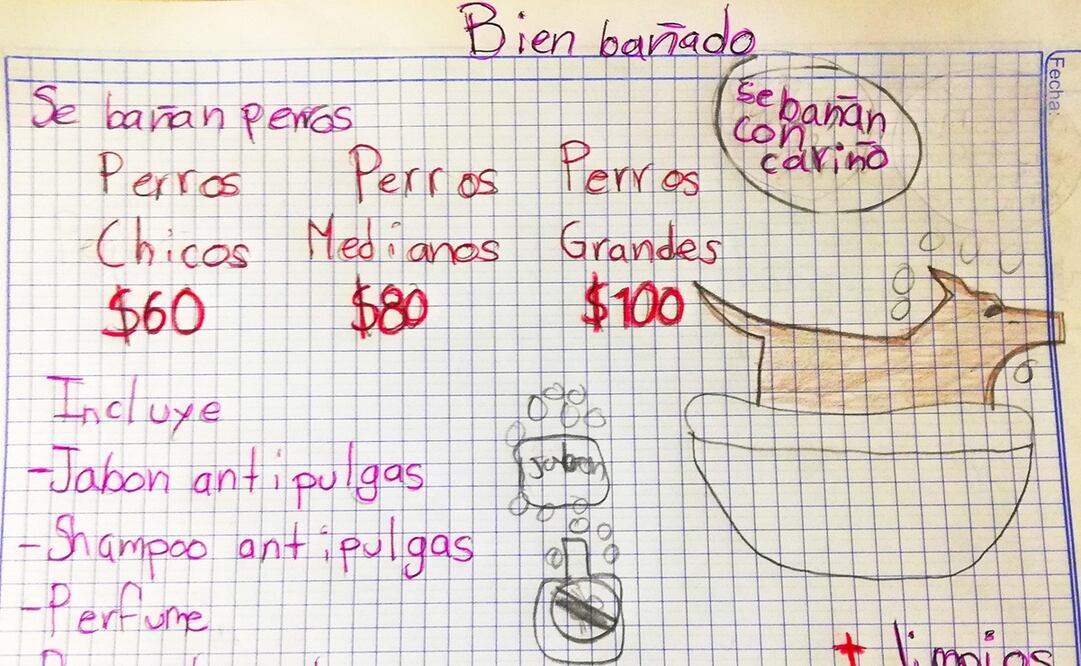 Bien bañado
Fecha:
Se bañan perros
Se bañan
con
cariño
Perros Perros Perros
Chicos Medianos Grandes
$60 $80 $100
Incluye
-Jabon antipulgas
Jabon
-Shampoo antipulgas
-Perfume
+ limpios